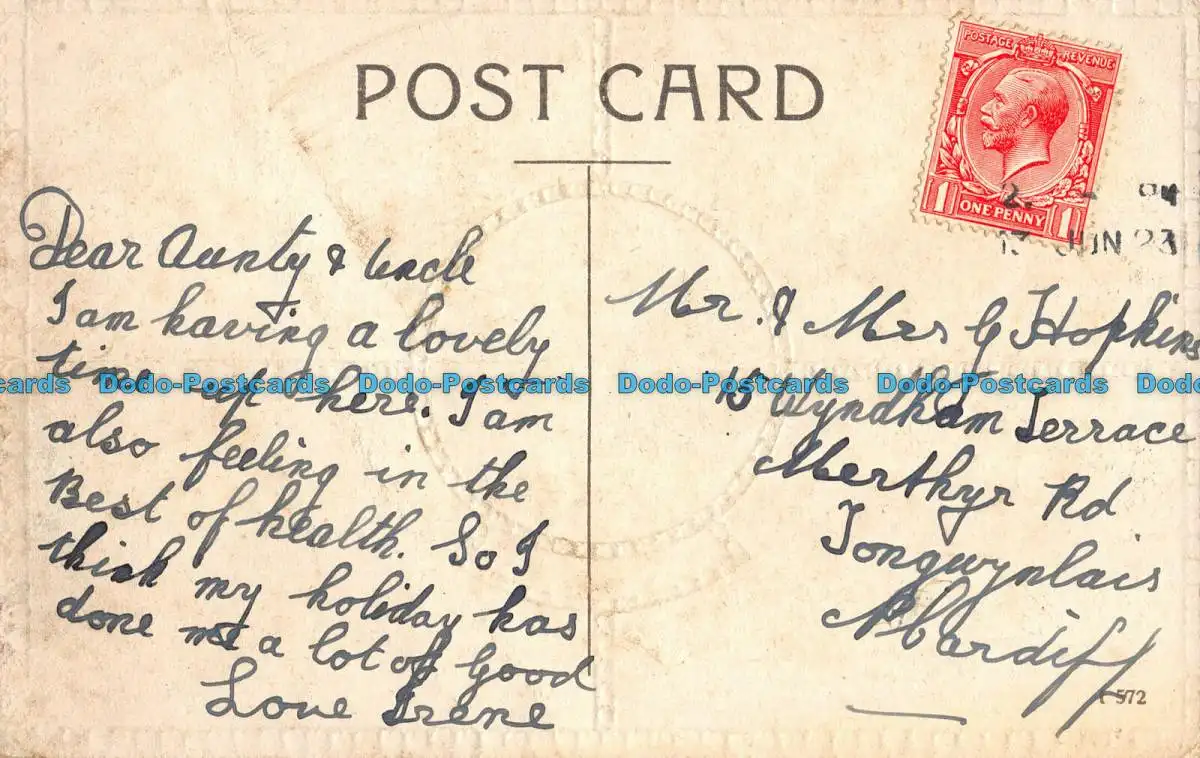 POST CARD
POSTAGE REVENUE
1 ONE PENNY 1
JUN 23
Dear Aunty & Uncle
I am having a lovely
time up here. I am
also feeling in the
Best of health. So I
think my holiday has
done me a lot of Good
Love Irene
Mr. & Mrs G Hopkins
15 Wyndham Terrace
Merthyr Rd
Tongwynlais
Nr Cardiff
572
Dodo-Postcards Dodo-Postcards Dodo-Postcards Dodo-Postcards Dodo-Postcards